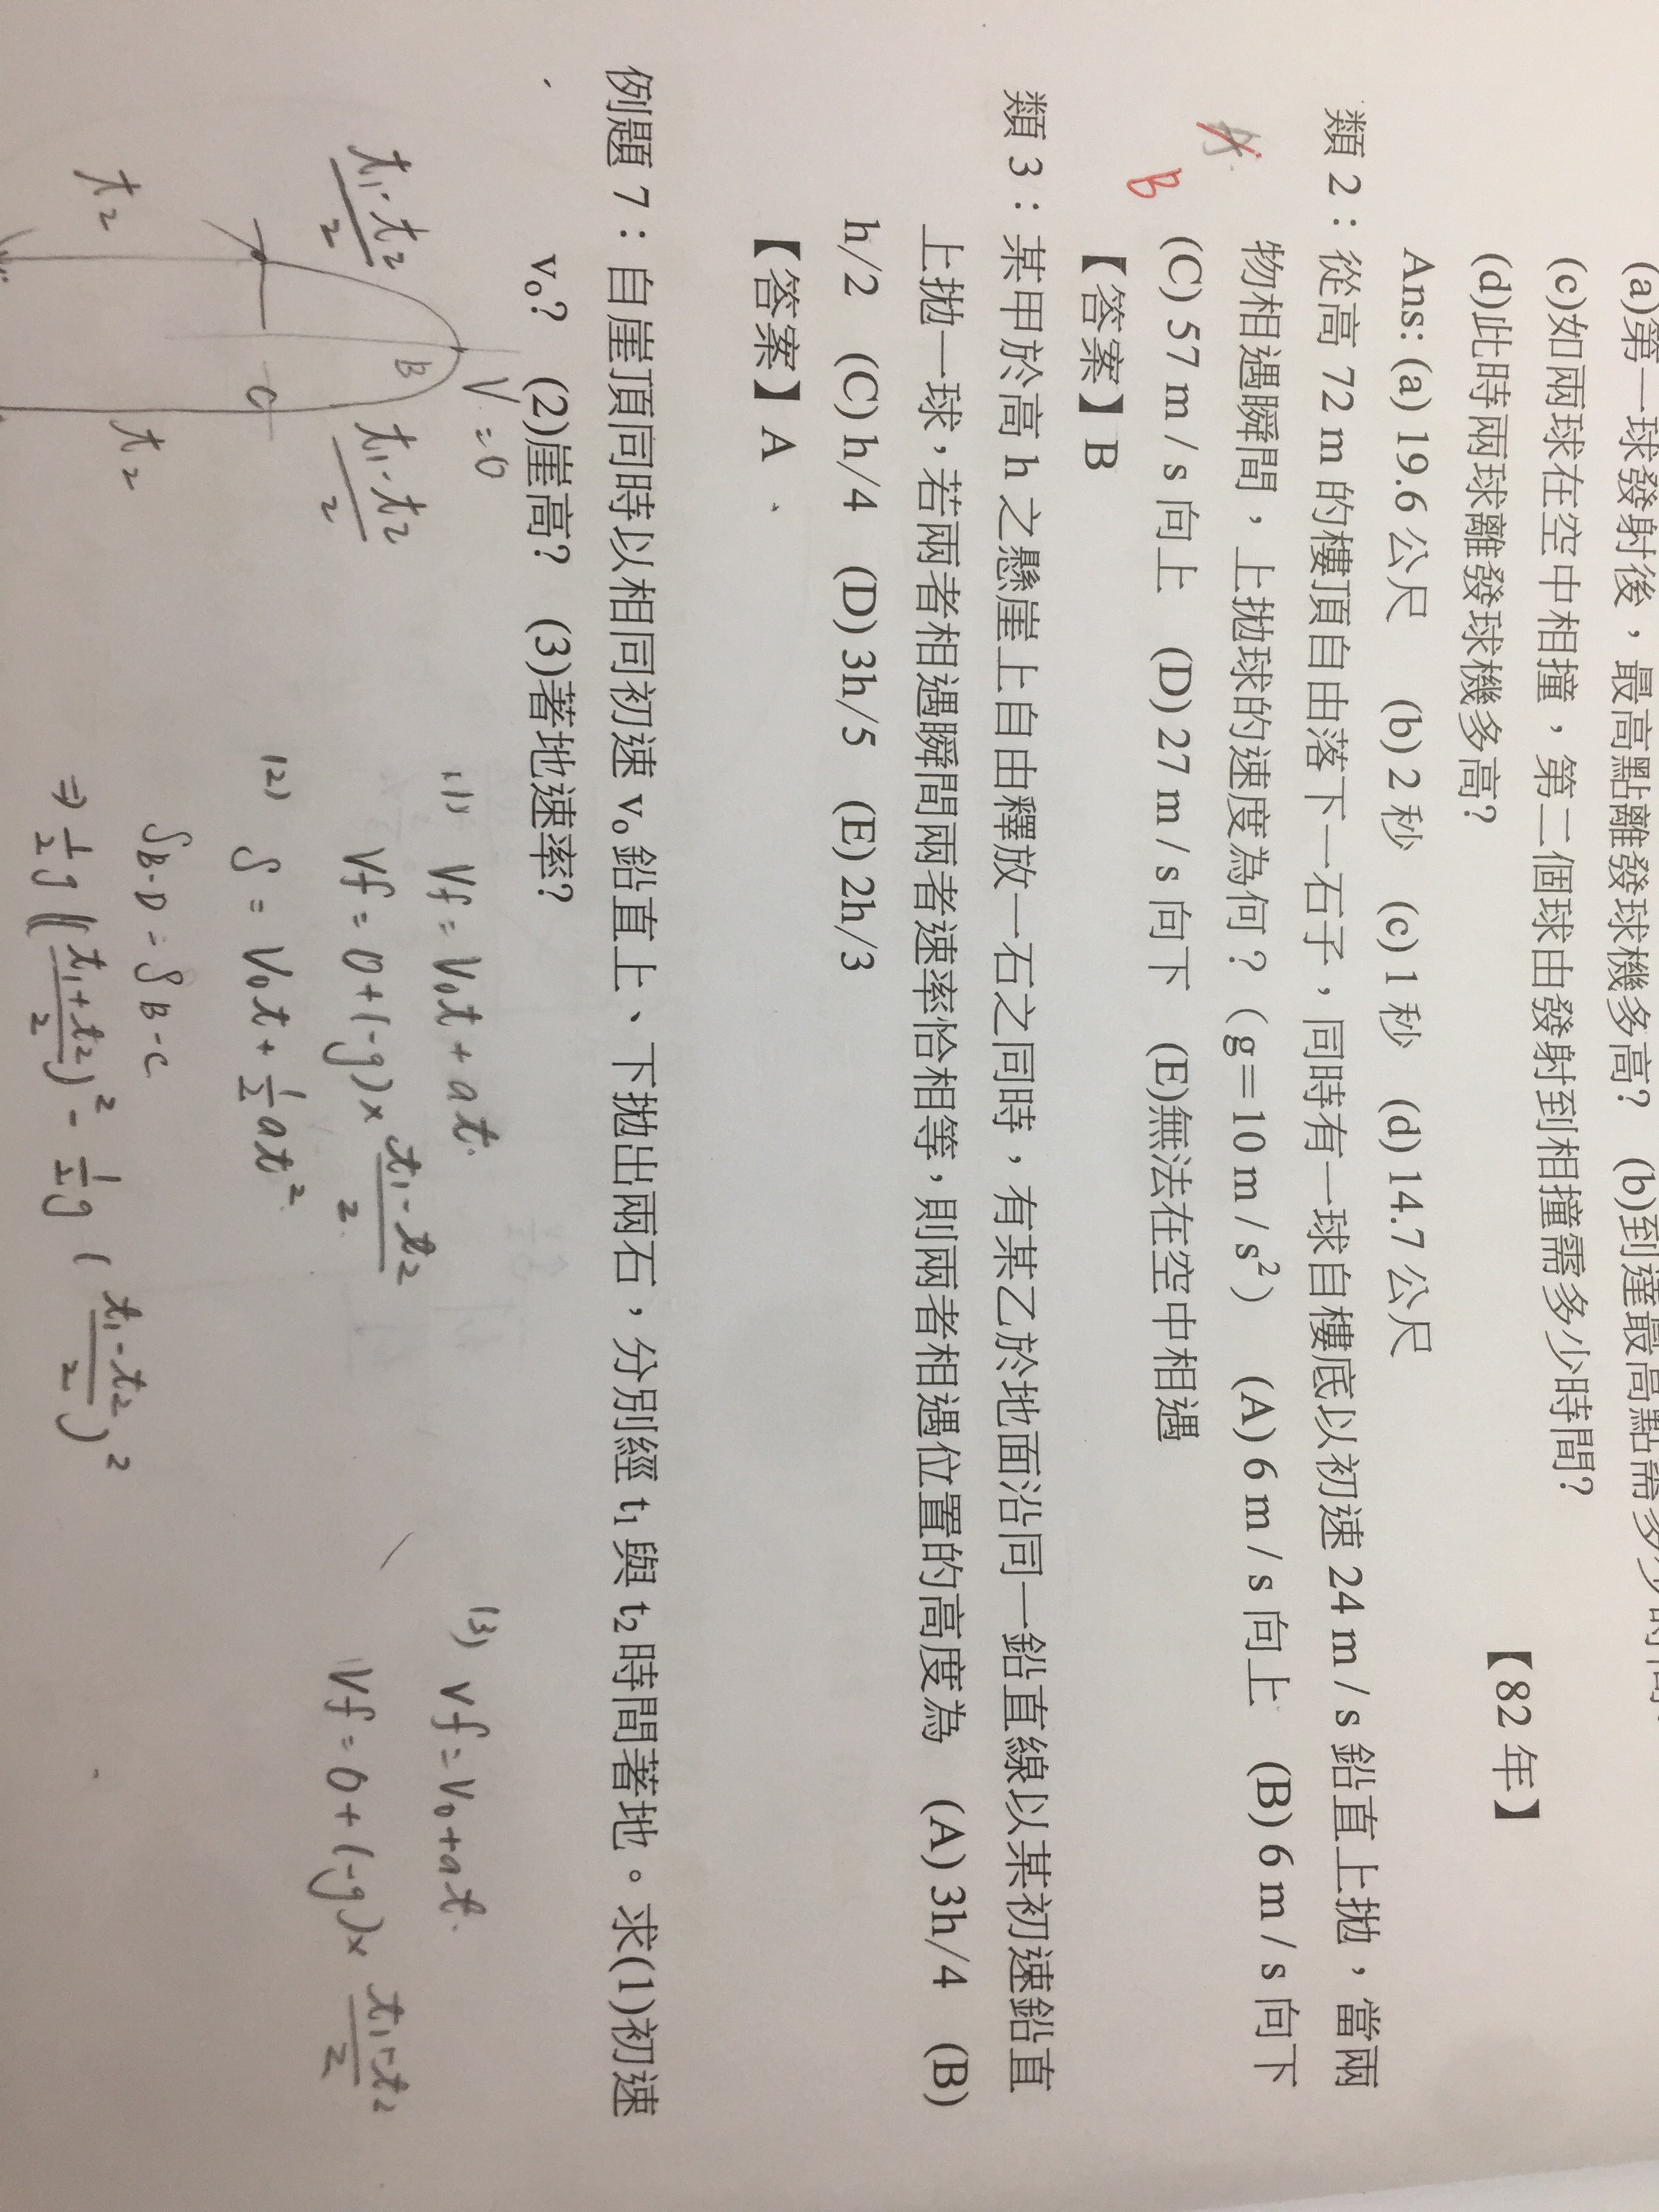 (a)第一球發射後，最高點離發球機多高？ (b)到達最高點需多少時間？
(c)如兩球在空中相撞，第二個球由發射到相撞需多少時間？
(d)此時兩球離發球機多高？
【82 年】
Ans: (a) 19.6 公尺 (b) 2 秒 (c) 1 秒 (d) 14.7 公尺
類 2：從高 72 m 的樓頂自由落下一石子，同時有一球自樓底以初速 24 m / s 鉛直上拋，當兩
物相遇瞬間，上拋球的速度為何？（g＝10 m / s²） (A) 6 m / s 向上 (B) 6 m / s 向下
(C) 57 m / s 向上 (D) 27 m / s 向下 (E)無法在空中相遇
B
【答案】B
類 3：某甲於高 h 之懸崖上自由釋放一石之同時，有某乙於地面沿同一鉛直線以某初速鉛直
上拋一球，若兩者相遇瞬間兩者速率恰相等，則兩者相遇位置的高度為 (A) 3h/4 (B)
h/2 (C) h/4 (D) 3h/5 (E) 2h/3
【答案】A
例題 7：自崖頂同時以相同初速 v₀ 鉛直上、下拋出兩石，分別經 t₁ 與 t₂ 時間著地。求(1)初速
v₀？ (2)崖高？ (3)著地速率？
V=0
B
C
(t₁-t₂)/2
(t₁-t₂)/2
t₂
t₂
(1) Vf = V₀t + at
Vf = 0 + (-g) × (t₁-t₂)/2
(2)
S = V₀t + ½at²
S B-D = S B-C
⇒ ½g ((t₁+t₂)/2)² - ½g ((t₁-t₂)/2)²
(3) Vf = V₀ + at
Vf = 0 + (-g) × (t₁-t₂)/2